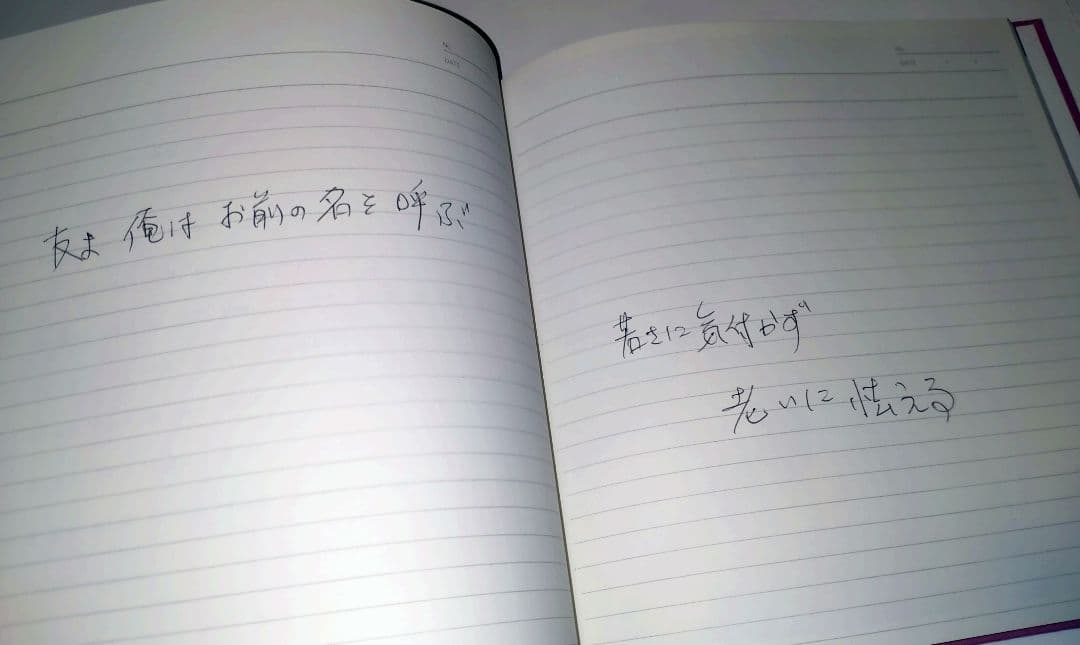 友よ 俺は お前の名を 呼ぶ
No.
DATE
No.
DATE
若さに気付かず
老いに怯える